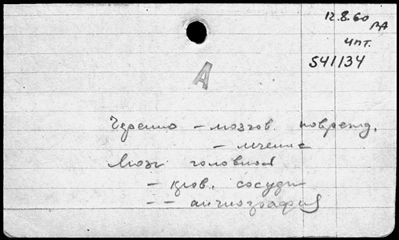 12.8.60
ВА
ЧПТ.
541134
А
Черепно - мозгов. поврежд.
- лечение
Мозг головной
- кров. сосуды
- - ангиография